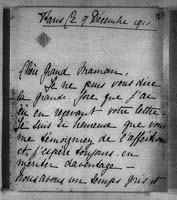 Paris le 9 Décembre 1911
Chère Grand Maman,
Je ne puis vous dire
la grande joie que j'ai
eu en recevant votre lettre
Je suis si heureuse que vous
me témoigniez de l'affection
et j'espère toujours en
mériter davantage —
Nous avons un temps gris et